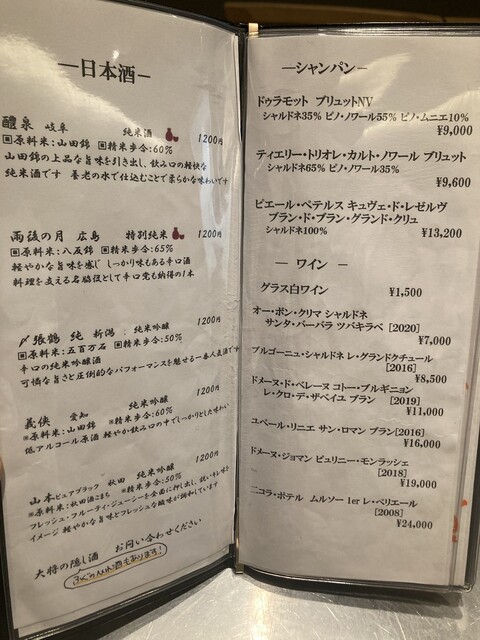 ―日本酒―
醴泉 岐阜 純米酒 1200円
▣原料米:山田錦 ▣精米歩合:60%
山田錦の上品な旨味を引き出し、飲み口の軽快な
純米酒です 養老の水で仕込むことで柔らかな味わいです
雨後の月 広島 特別純米 1200円
▣原料米:八反錦 ▣精米歩合:65%
軽やかな旨味を感じ しっかり味もある辛口酒
料理を支える名脇役として辛口党も納得の1本
〆張鶴 純 新潟 純米吟醸 1200円
▣原料米:五百万石 ▣精米歩合:50%
辛口の純米吟醸酒
可憐な旨さと圧倒的なパフォーマンスを魅せる一番人気酒です
義侠 愛知 純米吟醸 1200円
※原料米:山田錦 ※精米歩合:60%
低アルコール原酒 軽やか飲み口の中でしっかりとした味わい
山本ピュアブラック 秋田 純米吟醸 1200円
※原料米:秋田酒こまち ※精米歩合:50%
フレッシュ・フルーティ・ジューシーを全面に押し出し、鋭いキレ味を
イメージ 軽やかな旨味とフレッシュな酸味が調和しています
大将の隠し酒 お問い合わせください
ふぐのひれ酒もあります!
―シャンパン―
ドゥラモット ブリュットNV
シャルドネ35% ピノ・ノワール55% ピノ・ムニエ10%
¥9,000
ティエリー・トリオレ・カルト・ノワール ブリュット
シャルドネ65% ピノ・ノワール35%
¥9,600
ピエール・ペテルス キュヴェ・ド・レゼルヴ
ブラン・ド・ブラン・グランド・クリュ
シャルドネ100% ¥13,200
― ワイン ―
グラス白ワイン ¥1,500
オー・ボン・クリマ シャルドネ
サンタ・バーバラ ツバキラベ [2020]
¥7,000
ブルゴーニュ・シャルドネ レ・グランドクチュール
[2016]
¥8,500
ドメーヌ・ド・ベレーヌ コトー・ブルギニョン
レ・クロ・デ・ザペイユ ブラン [2019]
¥11,000
ユベール・リニエ サン・ロマン ブラン[2016]
¥16,000
ドメーヌ・ジョマン ピュリニー・モンラッシェ
[2018]
¥19,000
ニコラ・ポテル ムルソー 1er レ・ペリエール
[2008]
¥24,000